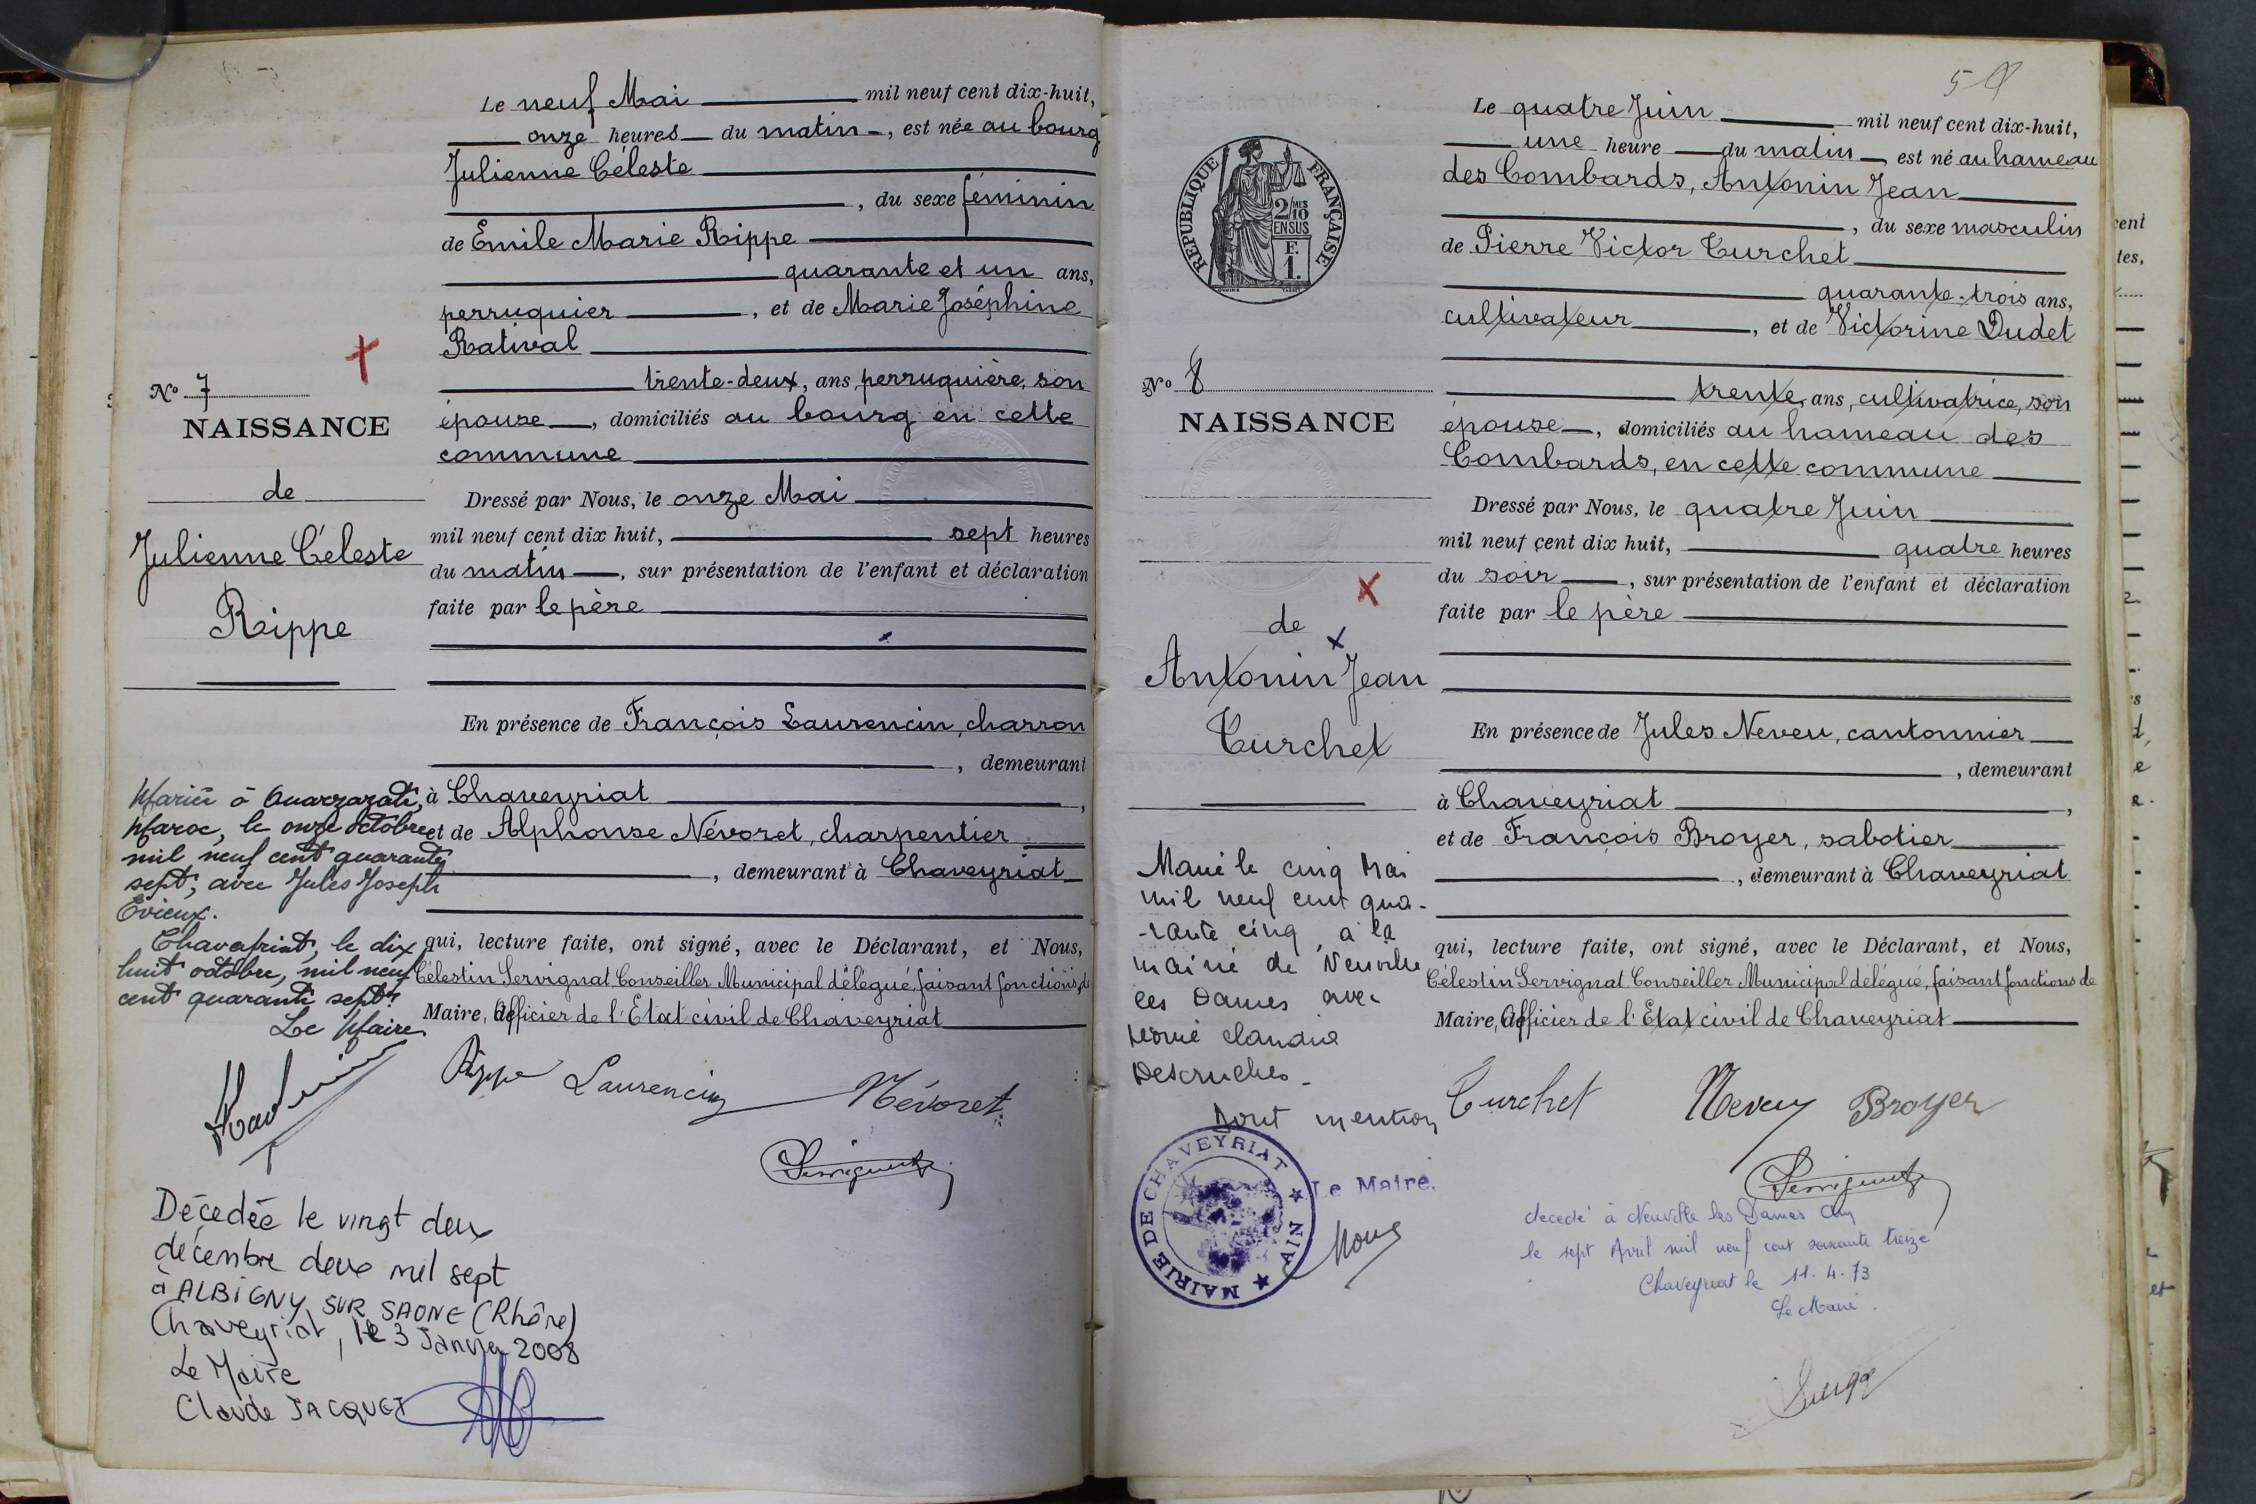 Le neuf Mai mil neuf cent dix-huit,
onze heures du matin, est née au bourg
Julienne Céleste
, du sexe féminin
de Emile Marie Rippe
quarante et un ans,
perruquier, et de Marie Joséphine
Rativat
trente-deux, ans, perruquière, son
épouse, domiciliés au bourg en cette
commune
Dressé par Nous, le onze Mai
mil neuf cent dix huit, sept heures
du matin, sur présentation de l'enfant et déclaration
faite par le père
En présence de François Laurencin, charron
, demeurant
à Chaveyriat,
et de Alphonse Névoret, charpentier
, demeurant à Chaveyriat
qui, lecture faite, ont signé, avec le Déclarant, et Nous,
Célestin Servignat Conseiller Municipal délégué, faisant fonctions de
Maire, Officier de l'Etat civil de Chaveyriat
Rippe Laurencin Névoret
Servignat
No 7
NAISSANCE
de
Julienne Céleste
Rippe
Mariée à Ouarzazate,
Maroc, le onze octobre
mil neuf cent quarante
sept, avec Jules Joseph
Evieux.
Chaveyriat, le dix
huit octobre, mil neuf
cent quarante sept.
Le Maire
Décedée le vingt deux
décembre deux mil sept
à ALBIGNY SUR SAONE (Rhône)
Chaveyriat, le 3 Janvier 2008
Le Maire
Claude JACQUET
5
Le quatre Juin mil neuf cent dix-huit,
une heure du matin, est né au hameau
des Combards, Antonin Jean
, du sexe masculin
de Pierre Victor Curchet
quarante-trois ans,
cultivateur, et de Victorine Dudet
trente, ans, cultivatrice, son
épouse, domiciliés au hameau des
Combards, en cette commune
Dressé par Nous, le quatre Juin
mil neuf cent dix huit, quatre heures
du soir, sur présentation de l'enfant et déclaration
faite par le père
En présence de Jules Neveu, cantonnier
, demeurant
à Chaveyriat,
et de François Broyer, sabotier
, demeurant à Chaveyriat
qui, lecture faite, ont signé, avec le Déclarant, et Nous,
Célestin Servignat Conseiller Municipal délégué, faisant fonctions de
Maire, Officier de l'Etat civil de Chaveyriat
Curchet Neveu Broyer
Servignat
décédé à Neuville les Dames Ain
le sept Avril mil neuf cent soixante treize
Chaveyriat le 11.4.73
Le Maire.
REPUBLIQUE FRANÇAISE
2/10 MES
EN SUS
F.
1.
No 8
NAISSANCE
de
Antonin Jean
Curchet
Marié le cinq Mai
mil neuf cent qua-
-rante cinq, à la
mairie de Neuville
les Dames avec
Marie Claudia
Descruches-
Dont mention
Le Maire.
MAIRIE DE CHAVEYRIAT
AIN